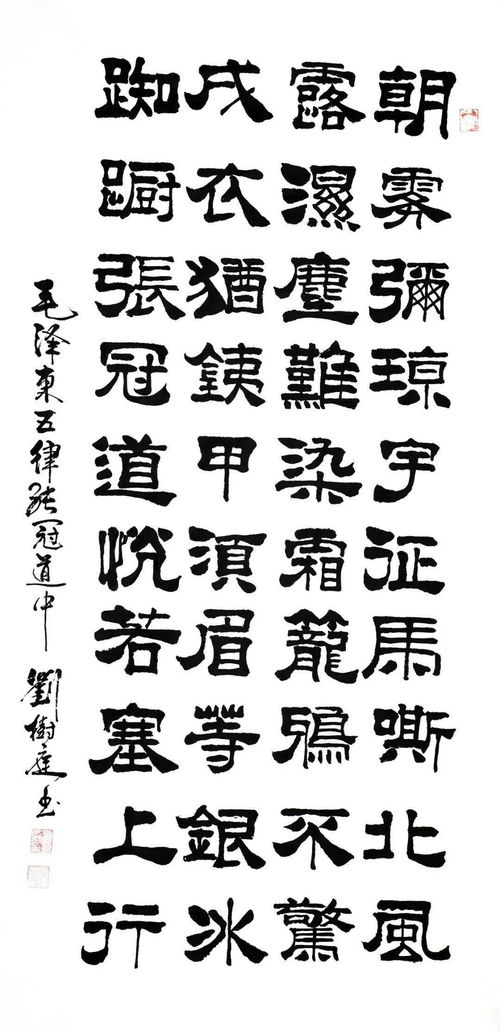 朝雾彌琼宇征馬嘶北風
露濕塵難染霜籠鴉不驚
戎衣猶銕甲須眉等銀冰
踟蹰張冠道恍若塞上行
毛泽東五律张冠道中 劉樹庭书